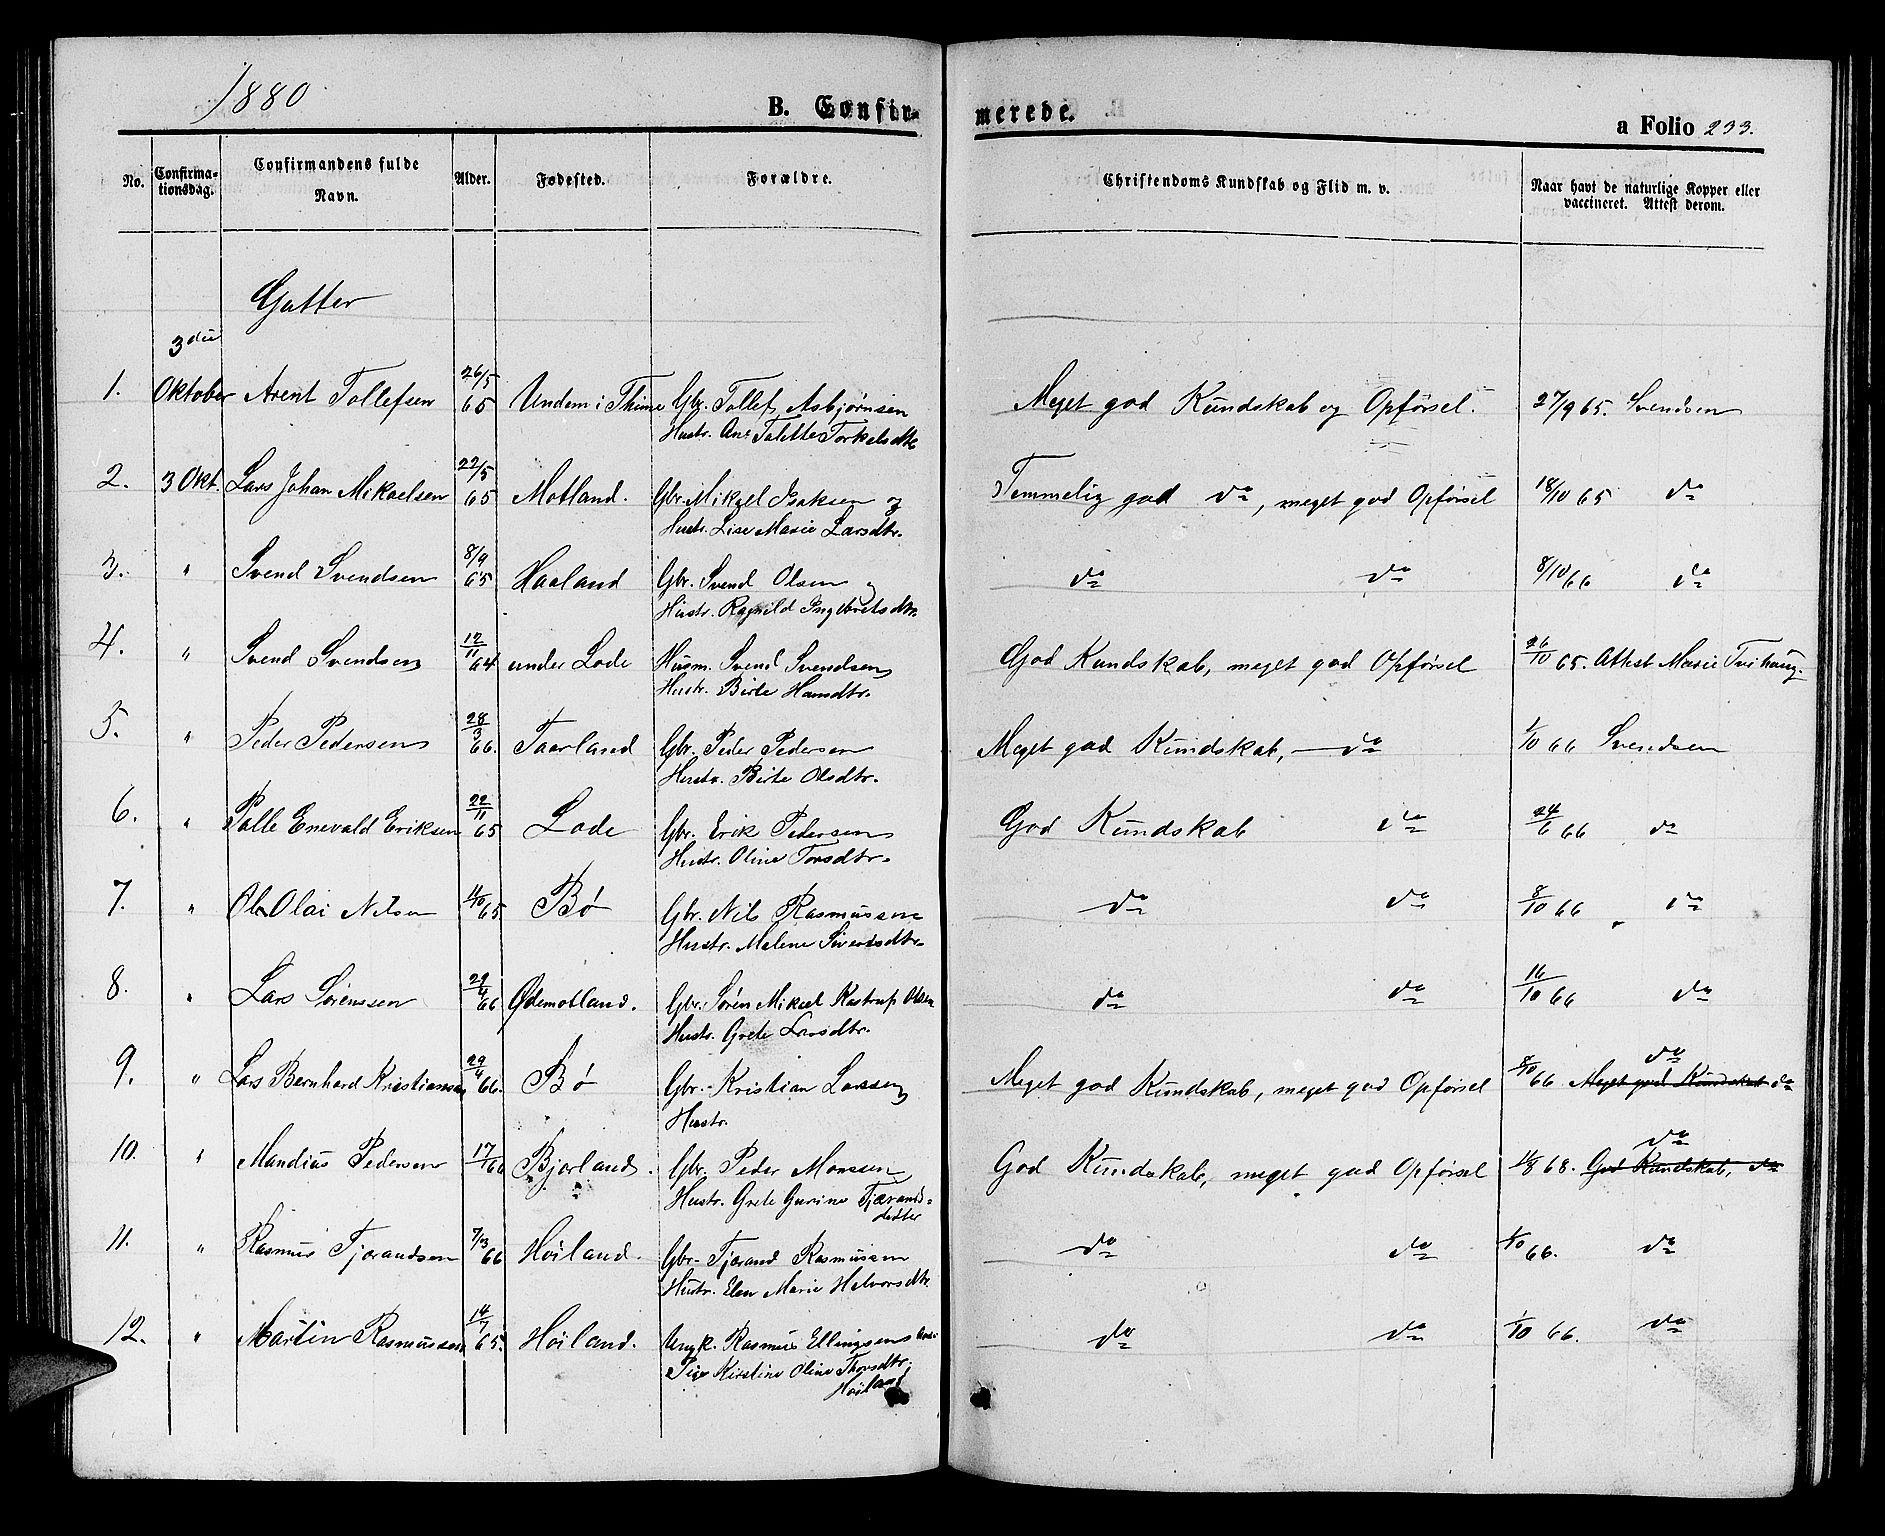 1880
B. Confir-
merede.
a Folio 233.
No. Confirma-tionsdag. Confirmandens fulde Navn. Alder. Fødested. Forældre. Christendoms Kundskab og Flid m. v. Naar havt de naturlige Kopper eller vaccineret. Attest derom.
Gutter
3die
1. Oktober Arent Tollefsen 26/5 65 Undem i Thime Gbr. Tollef Asbjørnsen Meget god Kundskab og Opførsel. 27/9 65. Svendsen
Hustr. Ane Talette Torkelsdtr
2. 3 Okt. Lars Johan Mikaelsen 22/5 65 Motland. Gbr. Mikael Isaksen og Temmelig god do, meget god Opførsel 18/10 65 do
Hustr. Lise Marie Larsdtr.
3. " Svend Svendsen 8/9 65 Haaland Gbr. Svend Olsen do do 8/10 66 do
Hustr. Ragnild Ingebretsdtr.
4. " Svend Svendsen 12/11 64 under Lode Husm. Svend Svendsen God Kundskab, meget god Opførsel 26/10 65. Attest Marie Tvihaug.
Hustr. Birte Hansdtr.
5. " Peder Pedersen 28/3 66. Taarland Gbr. Peder Pedersen Meget god Kundskab, — do 1/10 66 Svendsen
Hustr. Birte Olsdtr.
6. " Palle Enevald Eriksen 22/11 65 Lode Gbr. Erik Pedersen God Kundskab do 24/6 66 do
Hustr. Oline Torsdtr.
7. " Ole Olai Nilsen 4/10 65 Bø Gbr. Nils Rasmussen do do 8/10 66 do
Hustr. Malene Sivertsdtr.
8. " Lars Sørenssen 29/4 66 Ødemotland. Gbr. Søren Mikael Kastrup Olsen do do 16/10 66 do
Hustr. Grete Larsdtr.
9. " Lars Bernhard Kristiansen 29/4 66. Bø Gbr. Kristian Larssen Meget god Kundskab, meget god Opførsel 8/10 66 do Meget god Kundskab do
Hustr.
10. " Mandius Pedersen 17/1 66 Bjorland. Gbr. Peder Monssen God Kundskab, meget god Opførsel 11/8 68. do God Kundskab, do
Hustr. Grete Gurine Tjærands-
datter
11. " Rasmus Tjørandsen 7/3 66 Høiland. Gbr. Tjørand Rasmussen do do 1/10 66. do
Hustr. Elen Marie Halvorsdtr.
12. " Martin Rasmussen 14/7 65. Høiland. Ungk. Rasmus Ellingsen do do 1/10 66. do
Pige Kirstine Oline Thorsdtr.
Høiland